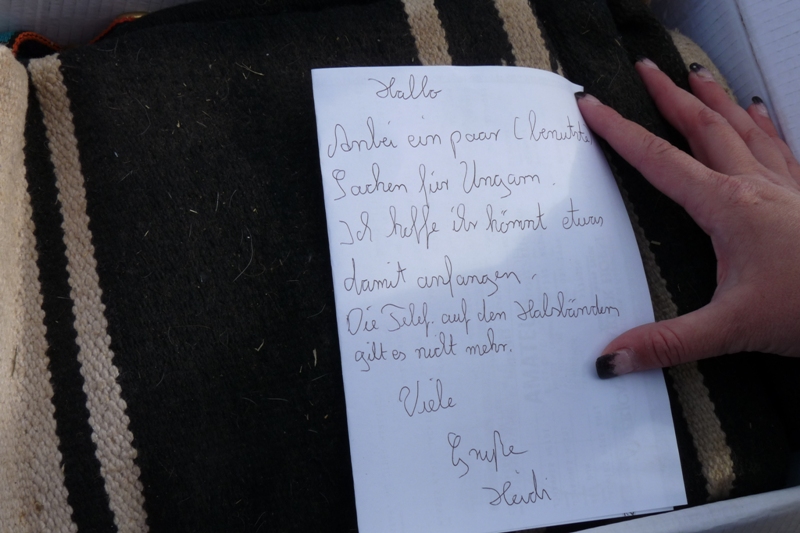 Hallo
Anbei ein paar (benutzte)
Sachen für Ungarn.
Ich hoffe ihr könnt etwas
damit anfangen.
Die Telef. auf den Halsbändern
gilt es nicht mehr.
Viele
Grüße
Heidi